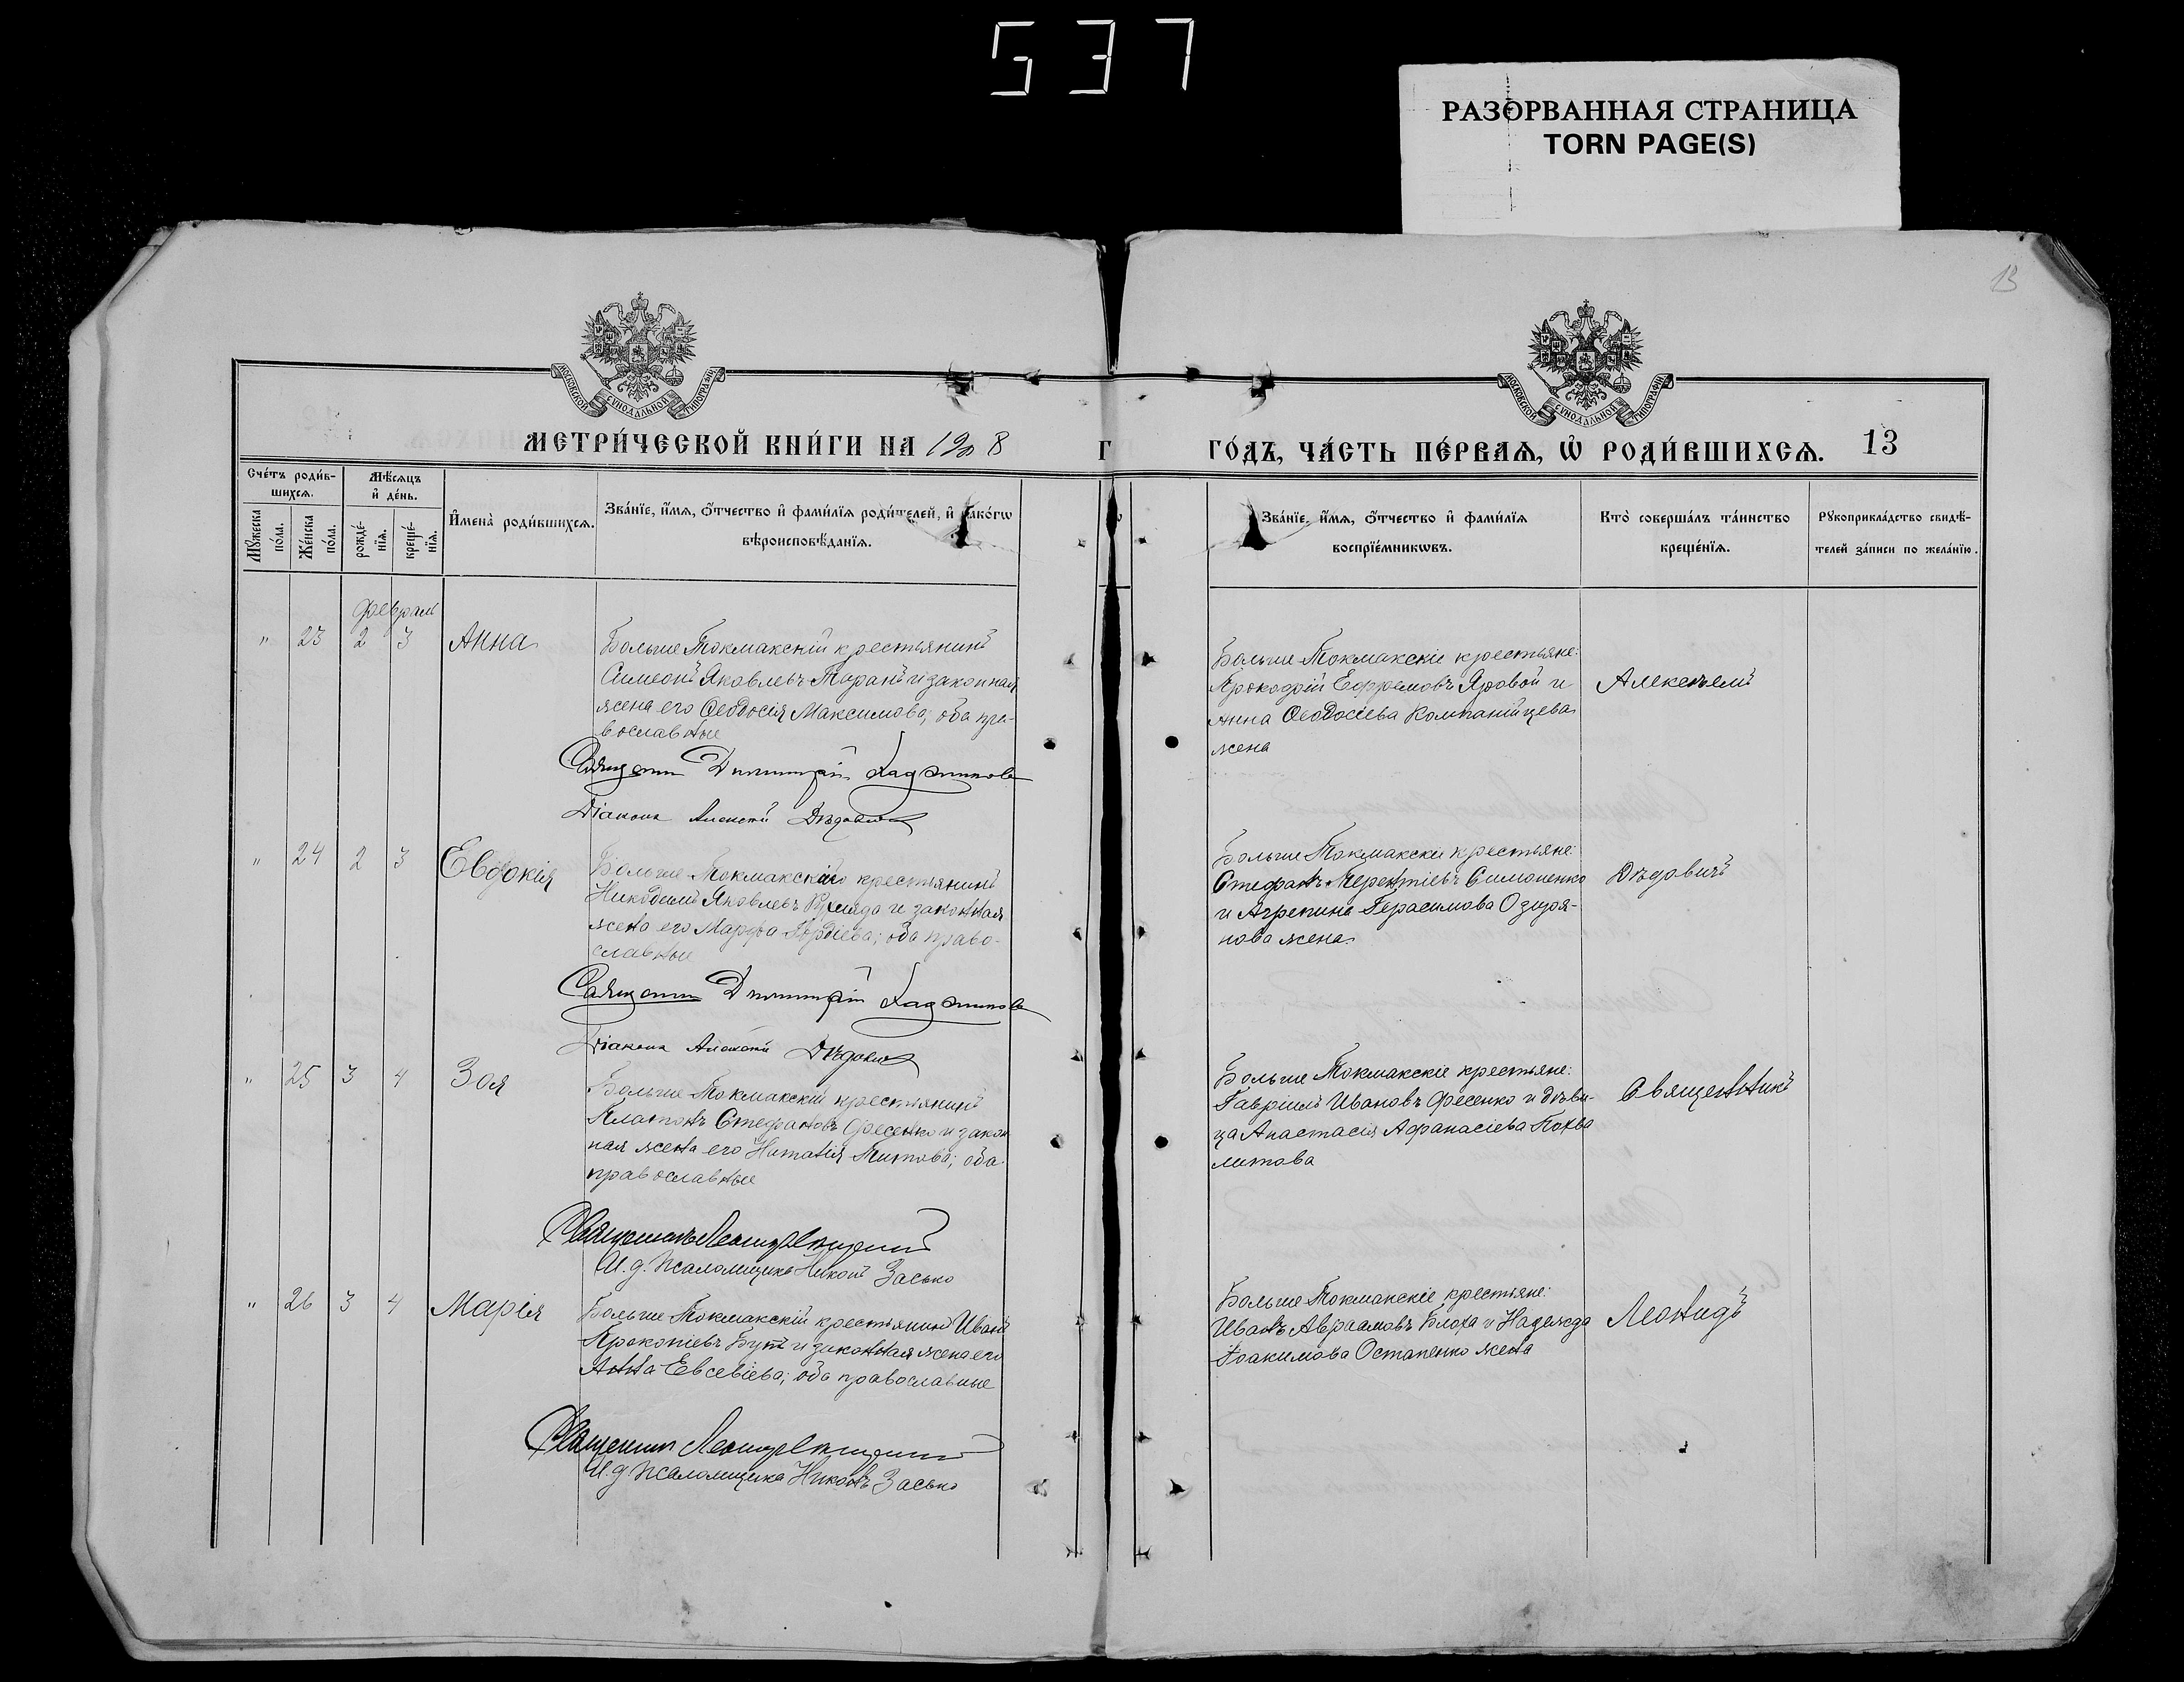 537
РАЗОРВАННАЯ СТРАНИЦА
TORN PAGE(S)
13
МОСКОВСКОЙ СѴНОДАЛЬНОЙ ТИПОГРАФІИ
МОСКОВСКОЙ СѴНОДАЛЬНОЙ ТИПОГРАФІИ
МЕТРИ́ЧЕСКОЙ КНИ́ГИ НА 1908 Г
ГО́ДЪ, ЧА́СТЬ ПЕ́РВАѦ, Ѡ҆ РОДИ́ВШИХСѦ. 13
Сче́тъ роди́в-
шихсѧ.
Мѣ́сѧцъ
и҆ де́нь.
Мꙋ́жеска
по́ла.
Же́нска
по́ла.
рожде́-
нїѧ.
креще́-
нїѧ.
И҆мена̀ роди́вшихсѧ.
Зва́нїе, и҆́мѧ, ѻ҆́тчество и҆ фами́лїѧ роди́телей, и҆ како́гѡ
вѣроисповѣ́данїѧ.
Зва́нїе, и҆́мѧ, ѻ҆́тчество и҆ фами́лїѧ
воспрїе́мникѡвъ.
Кто̀ соверша́лъ та́инство
креще́нїѧ.
Рꙋкоприкла́дство свидѣ́-
телей за́писи по жела́нїю.
Февраля
" 23 2 3 Анна
Больше-Токмакскій крестьянинъ
Симеонъ Яковлевъ Таранъ и законная
жена его Ѳеодосія Максимова; оба пра-
вославные
Священникъ Димитрій
Діаконъ Алексѣй Дѣдовичъ
Больше-Токмакскіе крестьяне:
Ефремовъ Яровой и
Анна Ѳеодосіева Компанійцева
жена
Алексѣемъ
" 24 2 3 Евдокія
Больше-Токмакскій крестьянинъ
Никодимъ Яковлевъ и законная
жена его Марфа Гордіева; оба право-
славные
Священникъ Димитрій
Діаконъ Алексѣй Дѣдовичъ
Больше-Токмакскіе крестьяне:
Стефанъ Терентіевъ Симоненко
и Агрепина Герасимова Озиря-
нова жена
Дѣдовичъ
" 25 3 4 Зоя
Больше-Токмакскій крестьянинъ
Платонъ Стефановъ Фесенко и закон
ная жена его Наталія Титова; оба
православные
Священникъ Леонидъ
И. д. псаломщика Никонъ Засько
Больше-Токмакскіе крестьяне:
Гавріилъ Ивановъ Фесенко и дѣви-
ца Анастасія Афанасіева Похва
литова
Священникъ
" 26 3 4 Марія
Больше-Токмакскій крестьянинъ Иванъ
Прокопіевъ Бутъ и законная жена его
Анна Евсевіева; оба православные
Священникъ Леонидъ
И. д. псаломщика Никонъ Засько
Больше-Токмакскіе крестьяне:
Иванъ Авраамовъ Блоха и Надежда
Іоакимова Остапенко жена
Леонидъ